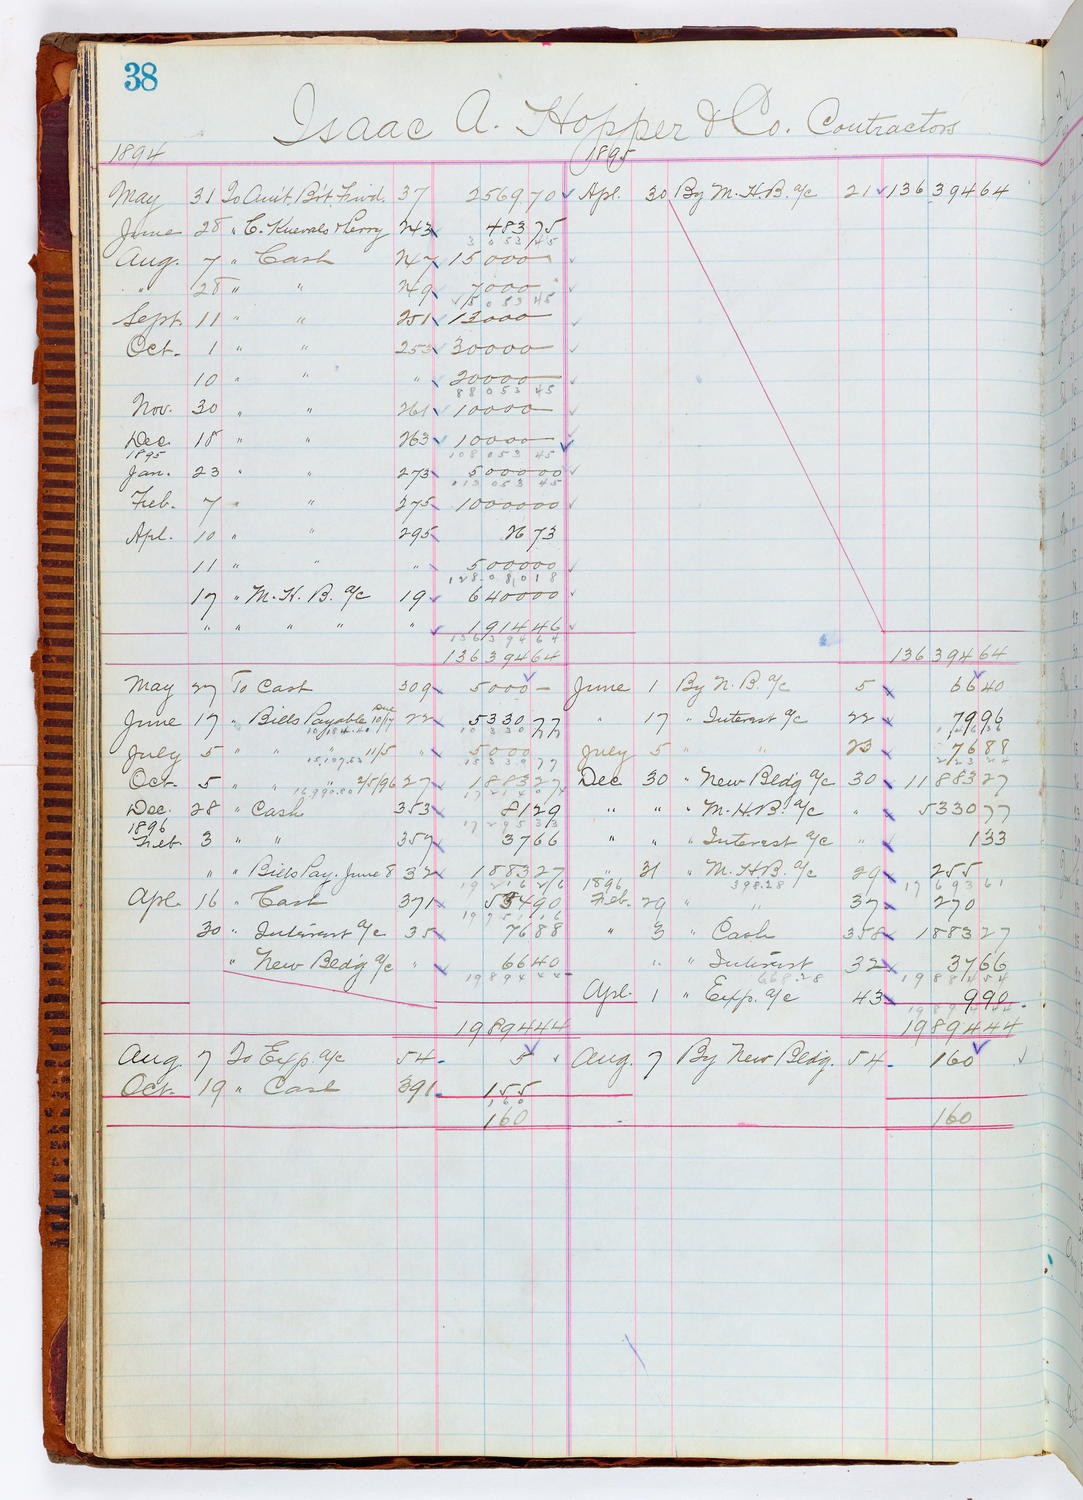 38
Isaac A. Hopper & Co. Contractors
1894 1895
May 31 To Am't Bst Frwd. 37 2569 70 Apl. 30 By M. H. B. a/c 21 136394 64
June 28 " C. & Perry 243 483 75
3 053 45
Aug. 7 " Cash 247 15000 -
" 28 " " 249 7000 -
25 053 45
Sept. 11 " " 251 13000 -
Oct. 1 " " 253 30000 -
10 " " " 20000 -
88 053 45
Nov. 30 " " 261 10000 -
Dec. 18 " " 263 10000 -
1895 108 053 45
Jan. 23 " " 273 5000 00
013 053 45
Feb. 7 " " 275 10000 00
Apl. 10 " " 295 26 73
11 " " " 5000 00
128 0 8 0 18
17 " M. H. B. a/c 19 6400 00
" " " " " 1914 46
136 394 64
136394 64 136394 64
May 27 To Cash 309 5000 - June 1 By N. B. a/c 5 66 40
June 17 " Bills Payable Due 10/17 22 5330 77 " 17 " Interest a/c 22 79 96
10,184.40 10 330 77 1 46 36
July 5 " " " 11/5 " 5000 July 5 " " 23 76 88
15,107.52 15 330 77 2 23 24
Oct. 5 " " 2/5/96 27 1883 27 Dec 30 " New Bldg a/c 30 11883 27
16,990.80 17 214 04
Dec. 28 " Cash 353 81 29 " " " M. H. B. a/c " 5330 77
1896 17 295 33
Feb. 3 " " 357 37 66 " " " Interest a/c " 1 33
" " Bills Pay. June 8 32 1883 27 " 31 " M. H. B. a/c 29 255
19 216 26 1896 398.28 17 693 61
Apl. 16 " Cash 371 534 90 Feb. 29 " " 37 270
19 751 16
30 " Interest a/c 35 76 88 " 3 " Cash 358 1883 27
" New Bldg a/c " 66 40 " " Interest 32 37 66
19 894 44 668.28 19 884 54
Apl. 1 " Exp. a/c 43 9 90
19 894 44
19894 44 19894 44
Aug. 7 To Exp. a/c 54 5 Aug. 7 By New Bldg. 54 160
Oct. 19 " Cash 391 155
160
160 160